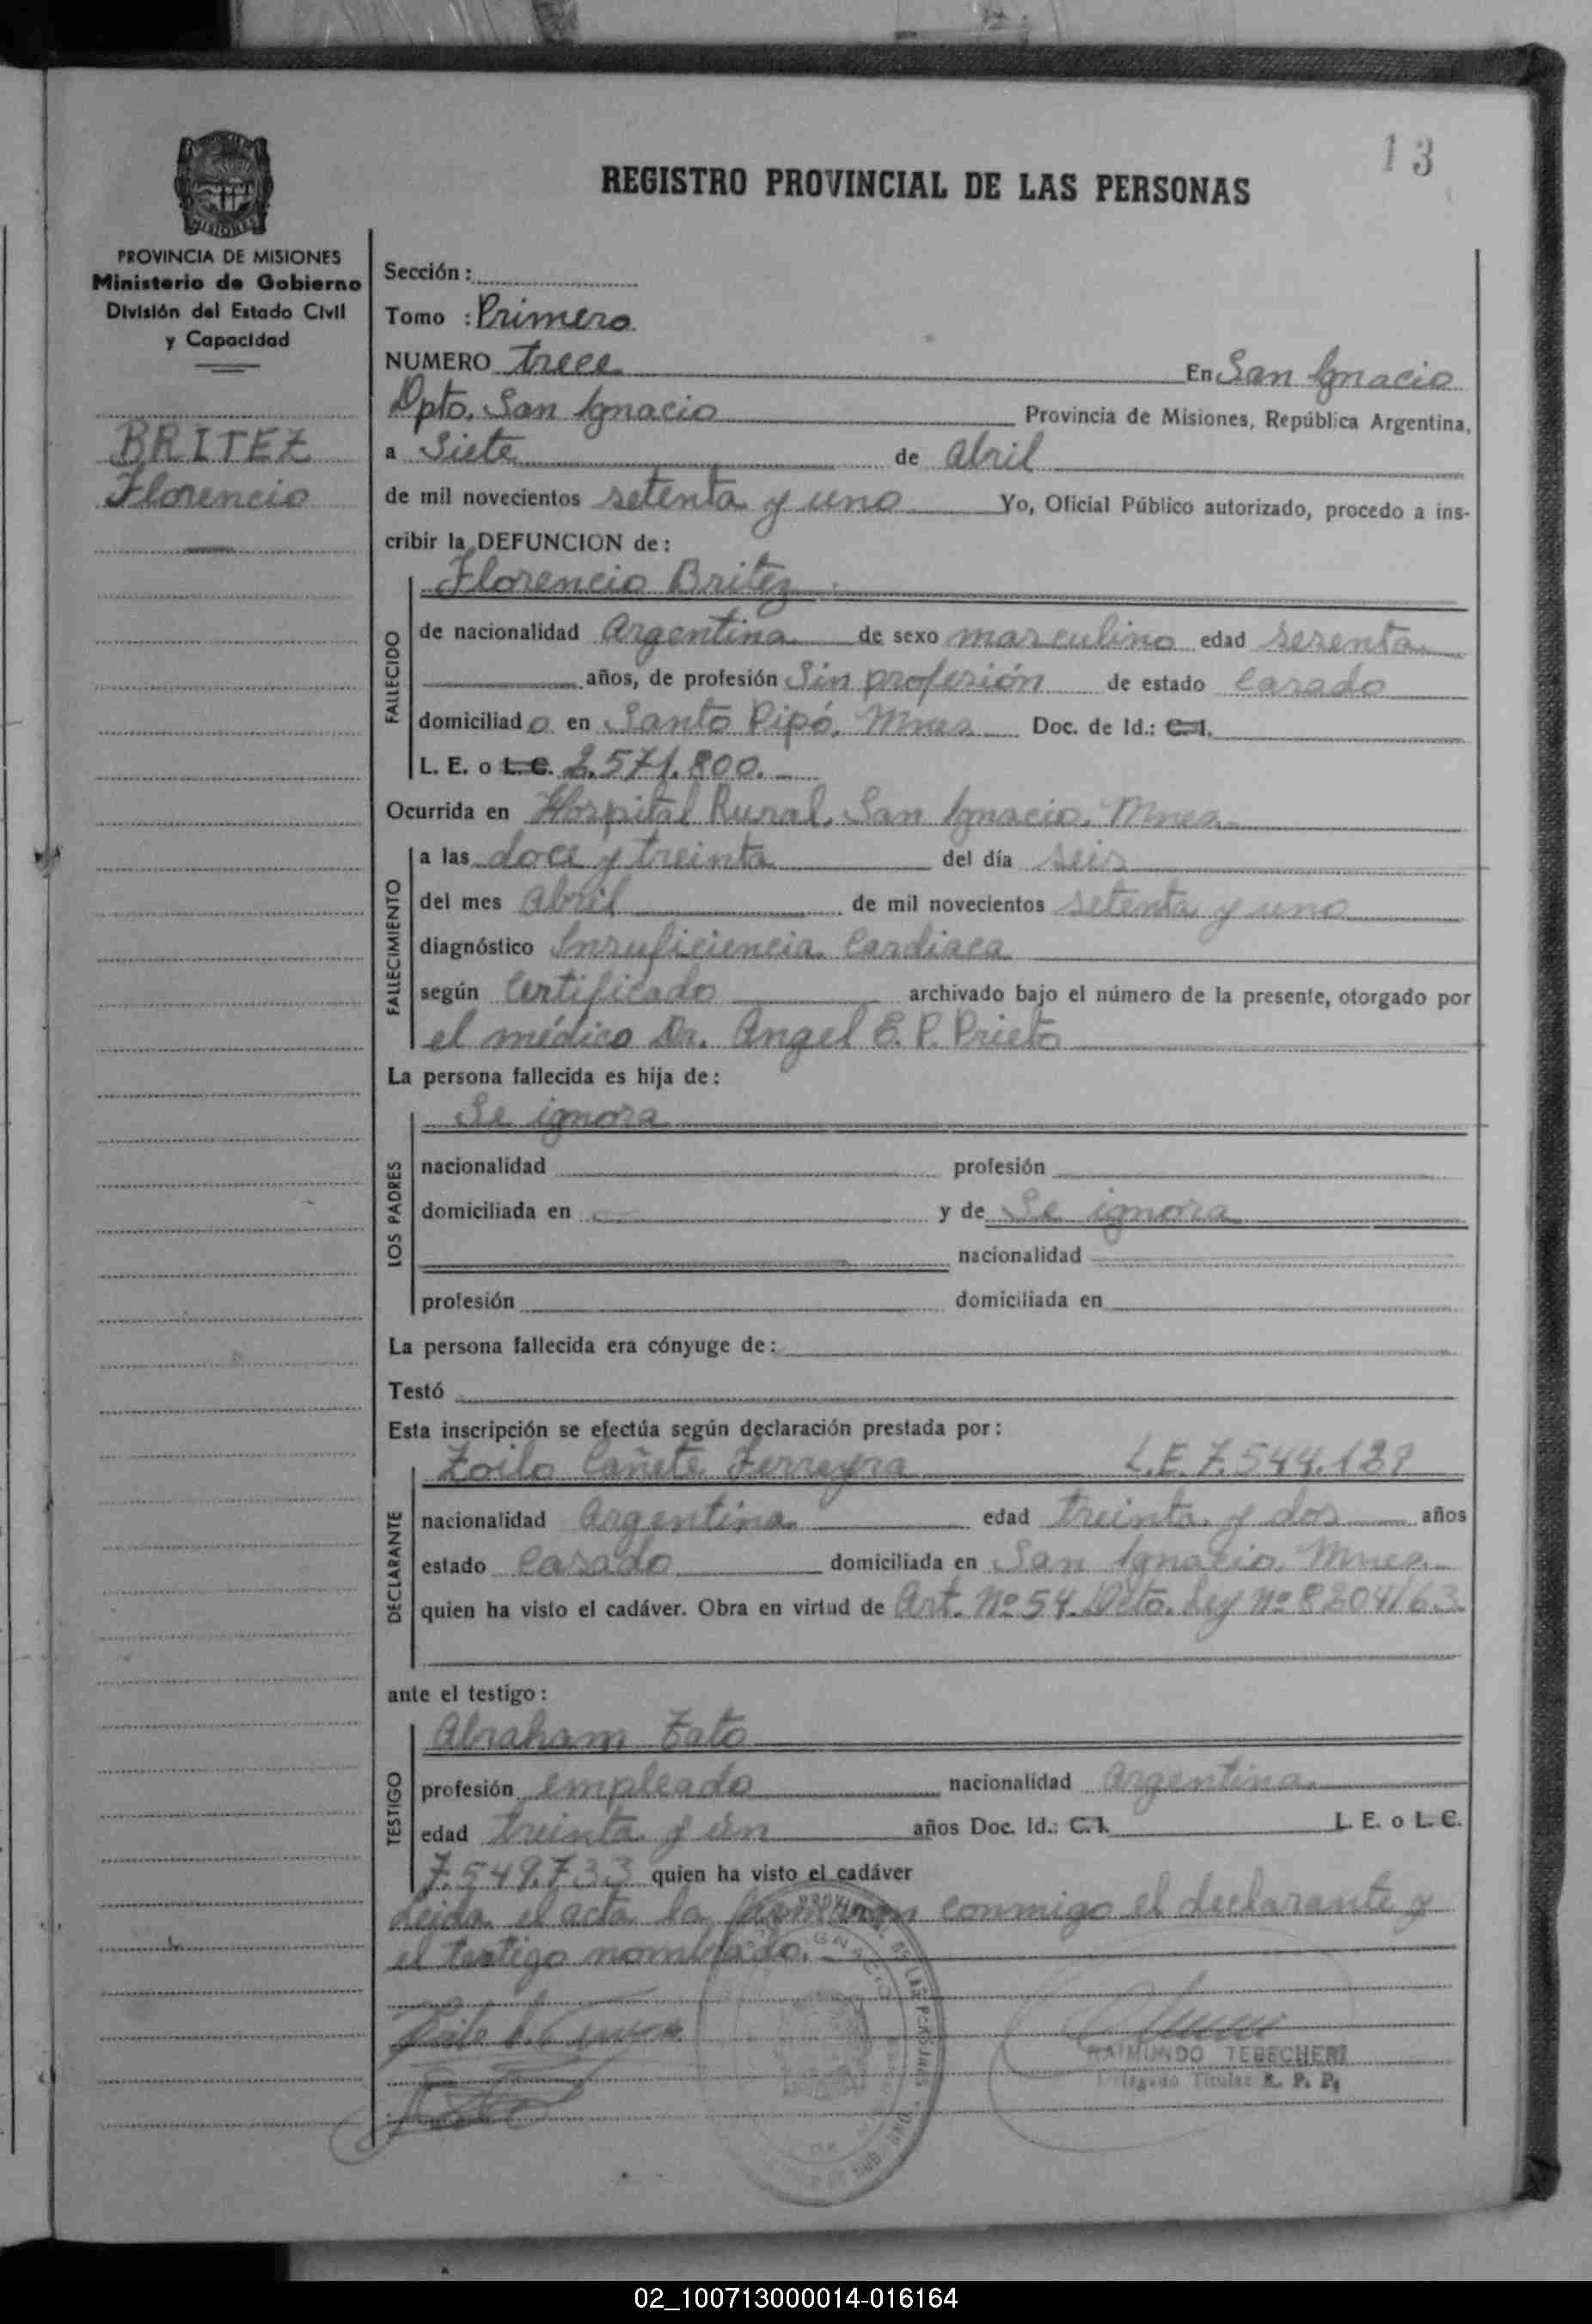 13
REGISTRO PROVINCIAL DE LAS PERSONAS
MISIONES
PROVINCIA DE MISIONES
Ministerio de Gobierno
División del Estado Civil
y Capacidad
BRITEZ
Florencio
Sección:
Tomo : Primero
NUMERO trece En San Ignacio
Dpto. San Ignacio Provincia de Misiones, República Argentina,
a Siete de abril
de mil novecientos setenta y uno Yo, Oficial Público autorizado, procedo a ins-
cribir la DEFUNCION de:
FALLECIDO
Florencio Britez
de nacionalidad Argentina de sexo masculino edad sesenta
años, de profesión Sin profesión de estado Casado
domiciliado en Santo Pipó, Mnes Doc. de Id.: C.I.
L. E. o L.C. 2.571.800.
Ocurrida en Hospital Rural, San Ignacio, Mnes.
FALLECIMIENTO
a las doce y treinta del día seis
del mes abril de mil novecientos setenta y uno
diagnóstico Insuficiencia Cardiaca
según Certificado archivado bajo el número de la presente, otorgado por
el médico Dr. Angel E. P. Prieto
La persona fallecida es hija de:
LOS PADRES
Se ignora
nacionalidad profesión
domiciliada en y de Se ignora
nacionalidad
profesión domiciliada en
La persona fallecida era cónyuge de:
Testó
Esta inscripción se efectúa según declaración prestada por:
DECLARANTE
Zoilo Cañete Ferreyra L.E. 7.544.139
nacionalidad Argentina edad treinta y dos años
estado Casado domiciliada en San Ignacio, Mnes.
quien ha visto el cadáver. Obra en virtud de Art. Nº 54. Dcto. Ley Nº 8204/63
ante el testigo:
TESTIGO
Abraham Zato
profesión empleado nacionalidad Argentina
edad treinta y ún años Doc. Id.: C.I. L. E. o L.C.
7.549.733 quien ha visto el cadáver
Leida el acta la firman conmigo el declarante y
el testigo nombrado.
RAIMUNDO TEBECHERI
Delegado Titular R. P. P.
02_100713000014-016164